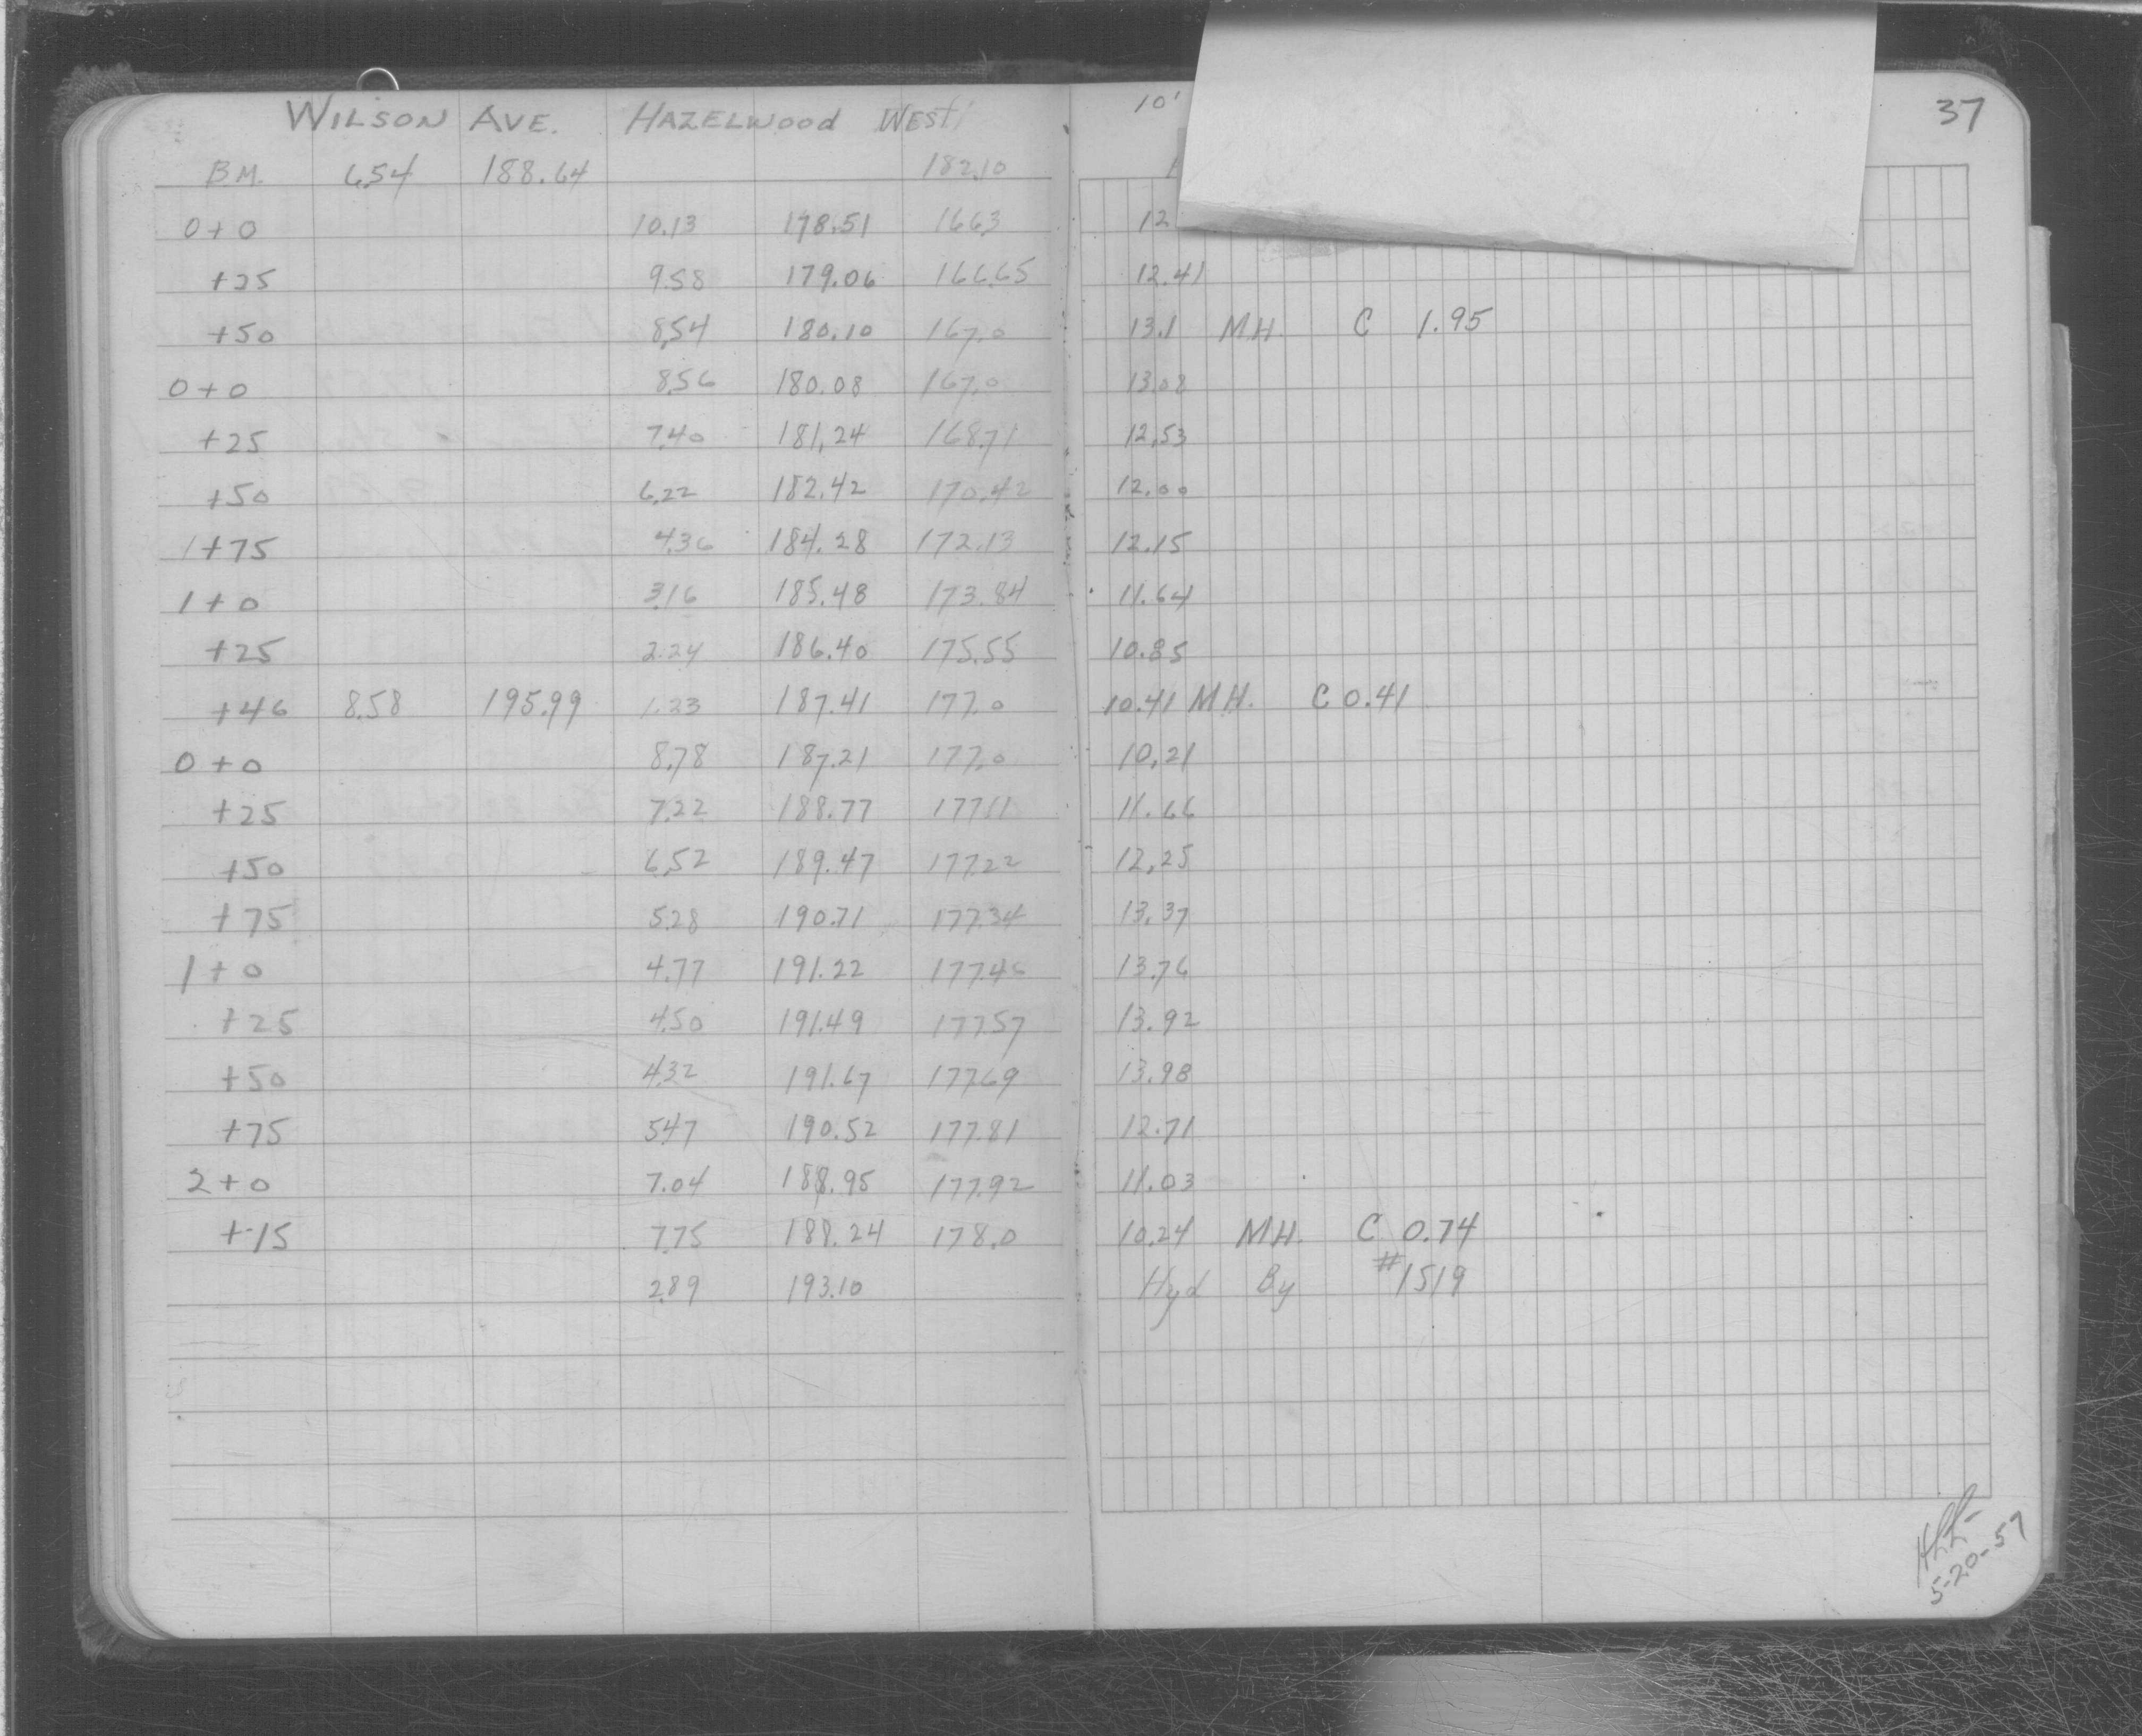 WILSON AVE. HAZELWOOD WEST 10' 37
B.M. 6.54 188.64 182.10
0+0 10.13 178.51 166.3 12
+25 9.58 179.06 166.65 12.41
+50 8.54 180.10 167.0 13.1 M.H. C 1.95
0+0 8.56 180.08 167.0 13.08
+25 7.40 181.24 168.71 12.53
+50 6.22 182.42 170.42 12.00
1+75 4.36 184.28 172.13 12.15
1+0 3.16 185.48 173.84 11.64
+25 2.24 186.40 175.55 10.85
+46 8.58 195.99 1.23 187.41 177.0 10.41 M.H. C 0.41
0+0 8.78 187.21 177.0 10.21
+25 7.22 188.77 177.11 11.66
+50 6.52 189.47 177.22 12.25
+75 5.28 190.71 177.34 13.37
1+0 4.77 191.22 177.46 13.76
+25 4.50 191.49 177.57 13.92
+50 4.32 191.67 177.69 13.98
+75 5.47 190.52 177.81 12.71
2+0 7.04 188.95 177.92 11.03
+15 7.75 188.24 178.0 10.24 M.H. C 0.74
2.89 193.10 Hyd By #1519
5-20-59